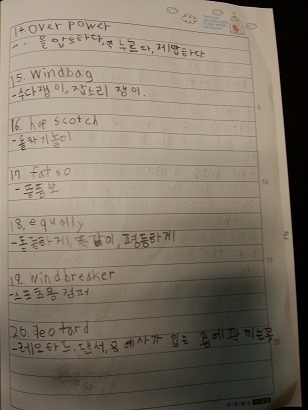 14. Over power
- ...을 압도하다, 억누르다, 제압하다.
15. Windbag
-수다쟁이, 잡소리 쟁이.
16. hop scotch
-돌차기놀이
17. fat so
- 뚱뚱보
18. equally
-동등하게, 똑같이, 평등하게
19. Windbreaker
-스포츠용 점퍼
20. leotard
-레오타드. 댄서, 곡예사가 입는 몸에 꽉 끼는옷
5
10
15